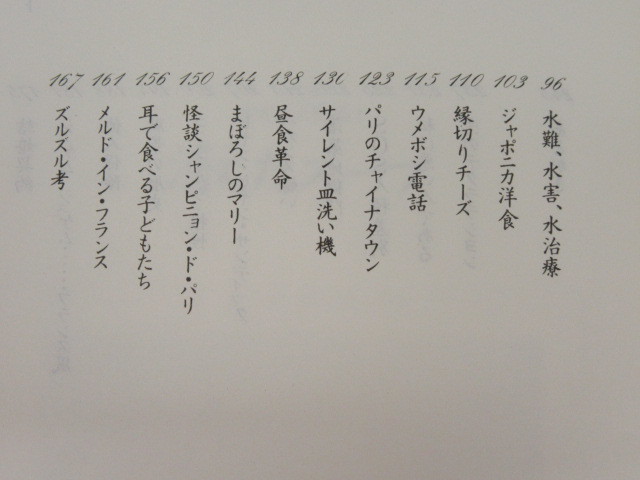 96 水難、水害、水治療
103 ジャポニカ洋食
110 縁切りチーズ
115 ウメボシ電話
123 パリのチャイナタウン
130 サイレント皿洗い機
138 昼食革命
144 まぼろしのマリー
150 怪談シャンピニョン・ド・パリ
156 耳で食べる子どもたち
161 メルド・イン・フランス
167 ズルズル考